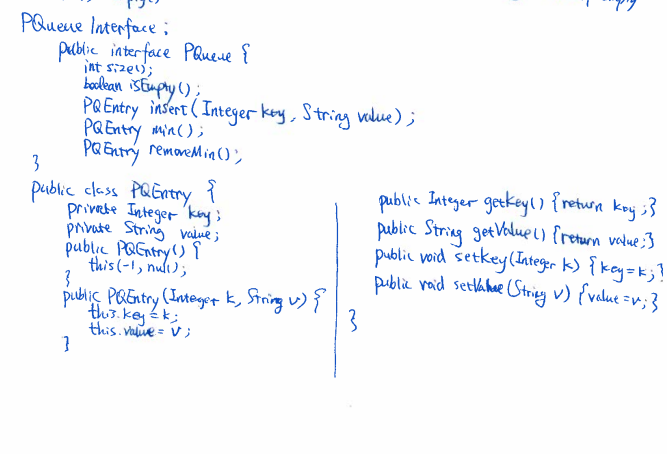 PQueue Interface:
public interface PQueue {
int size();
boolean isEmpty();
PQEntry insert(Integer key, String value);
PQEntry min();
PQEntry removeMin();
}
public class PQEntry {
private Integer key;
private String value;
public PQEntry() {
this(-1, null);
}
public PQEntry(Integer k, String v) {
this.key = k;
this.value = v;
}
public Integer getKey() {return key;}
public String getValue() {return value;}
public void setKey(Integer k) {key=k;}
public void setValue(String v) {value=v;}
}